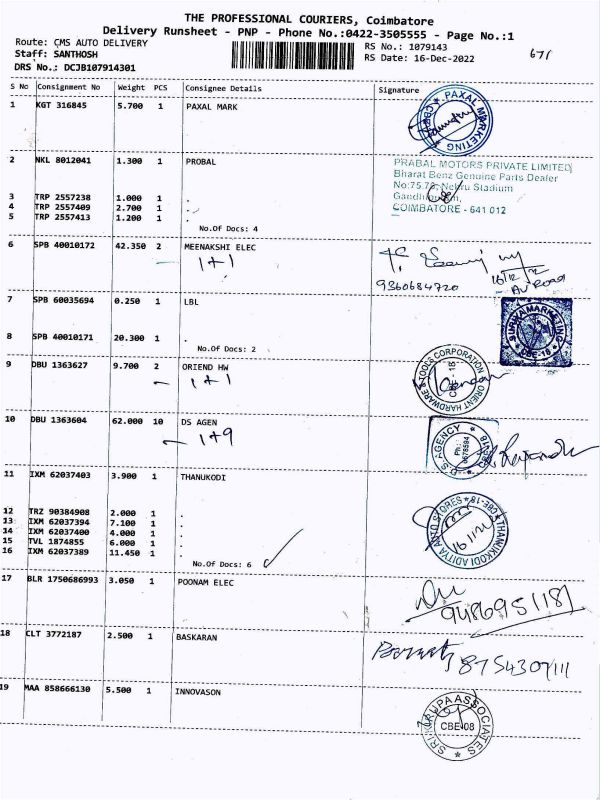 THE PROFESSIONAL COURIERS, Coimbatore
Delivery Runsheet - PNP - Phone No.:0422-3505555 - Page No.:1
Route: CMS AUTO DELIVERY
RS No.: 1079143
Staff: SANTHOSH
RS Date: 16-Dec-2022
671
DRS No.: DCJB107914301
S No Consignment No Weight PCS Consignee Details Signature
1 KGT 316845 5.700 1 PAXAL MARK
PAXAL MARKETING
2 NKL 8012041 1.300 1 PROBAL
PRABAL MOTORS PRIVATE LIMITED
Bharat Benz Genuine Parts Dealer
No:75.78, Nehru Stadium
Gandhipuram,
COIMBATORE - 641 012
3 TRP 2557238 1.000 1 .
4 TRP 2557409 2.700 1 .
5 TRP 2557413 1.200 1 .
No.Of Docs: 4
6 SPB 40010172 42.350 2 MEENAKSHI ELEC
1+1
9360684720
16/12/22
AV ROAD
7 SPB 60035694 0.250 1 LBL
MARKETING
CBE-18
8 SPB 40010171 20.300 1 .
No.Of Docs: 2
9 DBU 1363627 9.700 2 ORIEND HW
1+1
ORIENT HARDWARE & TOOLS CORPORATION
CBE - 18
10 DBU 1363604 62.000 10 DS AGEN
1+9
D.S. AGENCY
Ph:
11 IXM 62037403 3.900 1 THANUKODI
THANIKKODI ADITYA AUTO STORES
CBE-18
12 TRZ 90384908 2.000 1 .
13 IXM 62037394 7.100 1 .
14 IXM 62037400 4.000 1 .
15 TVL 1874855 6.000 1 .
16 IXM 62037389 11.450 1 .
No.Of Docs: 6
17 BLR 1750686993 3.050 1 POONAM ELEC
9486951187
18 CLT 3772187 2.500 1 BASKARAN
19 MAA 858666130 5.500 1 INNOVASON
SRI KRUPA ASSOCIATES
CBE-08